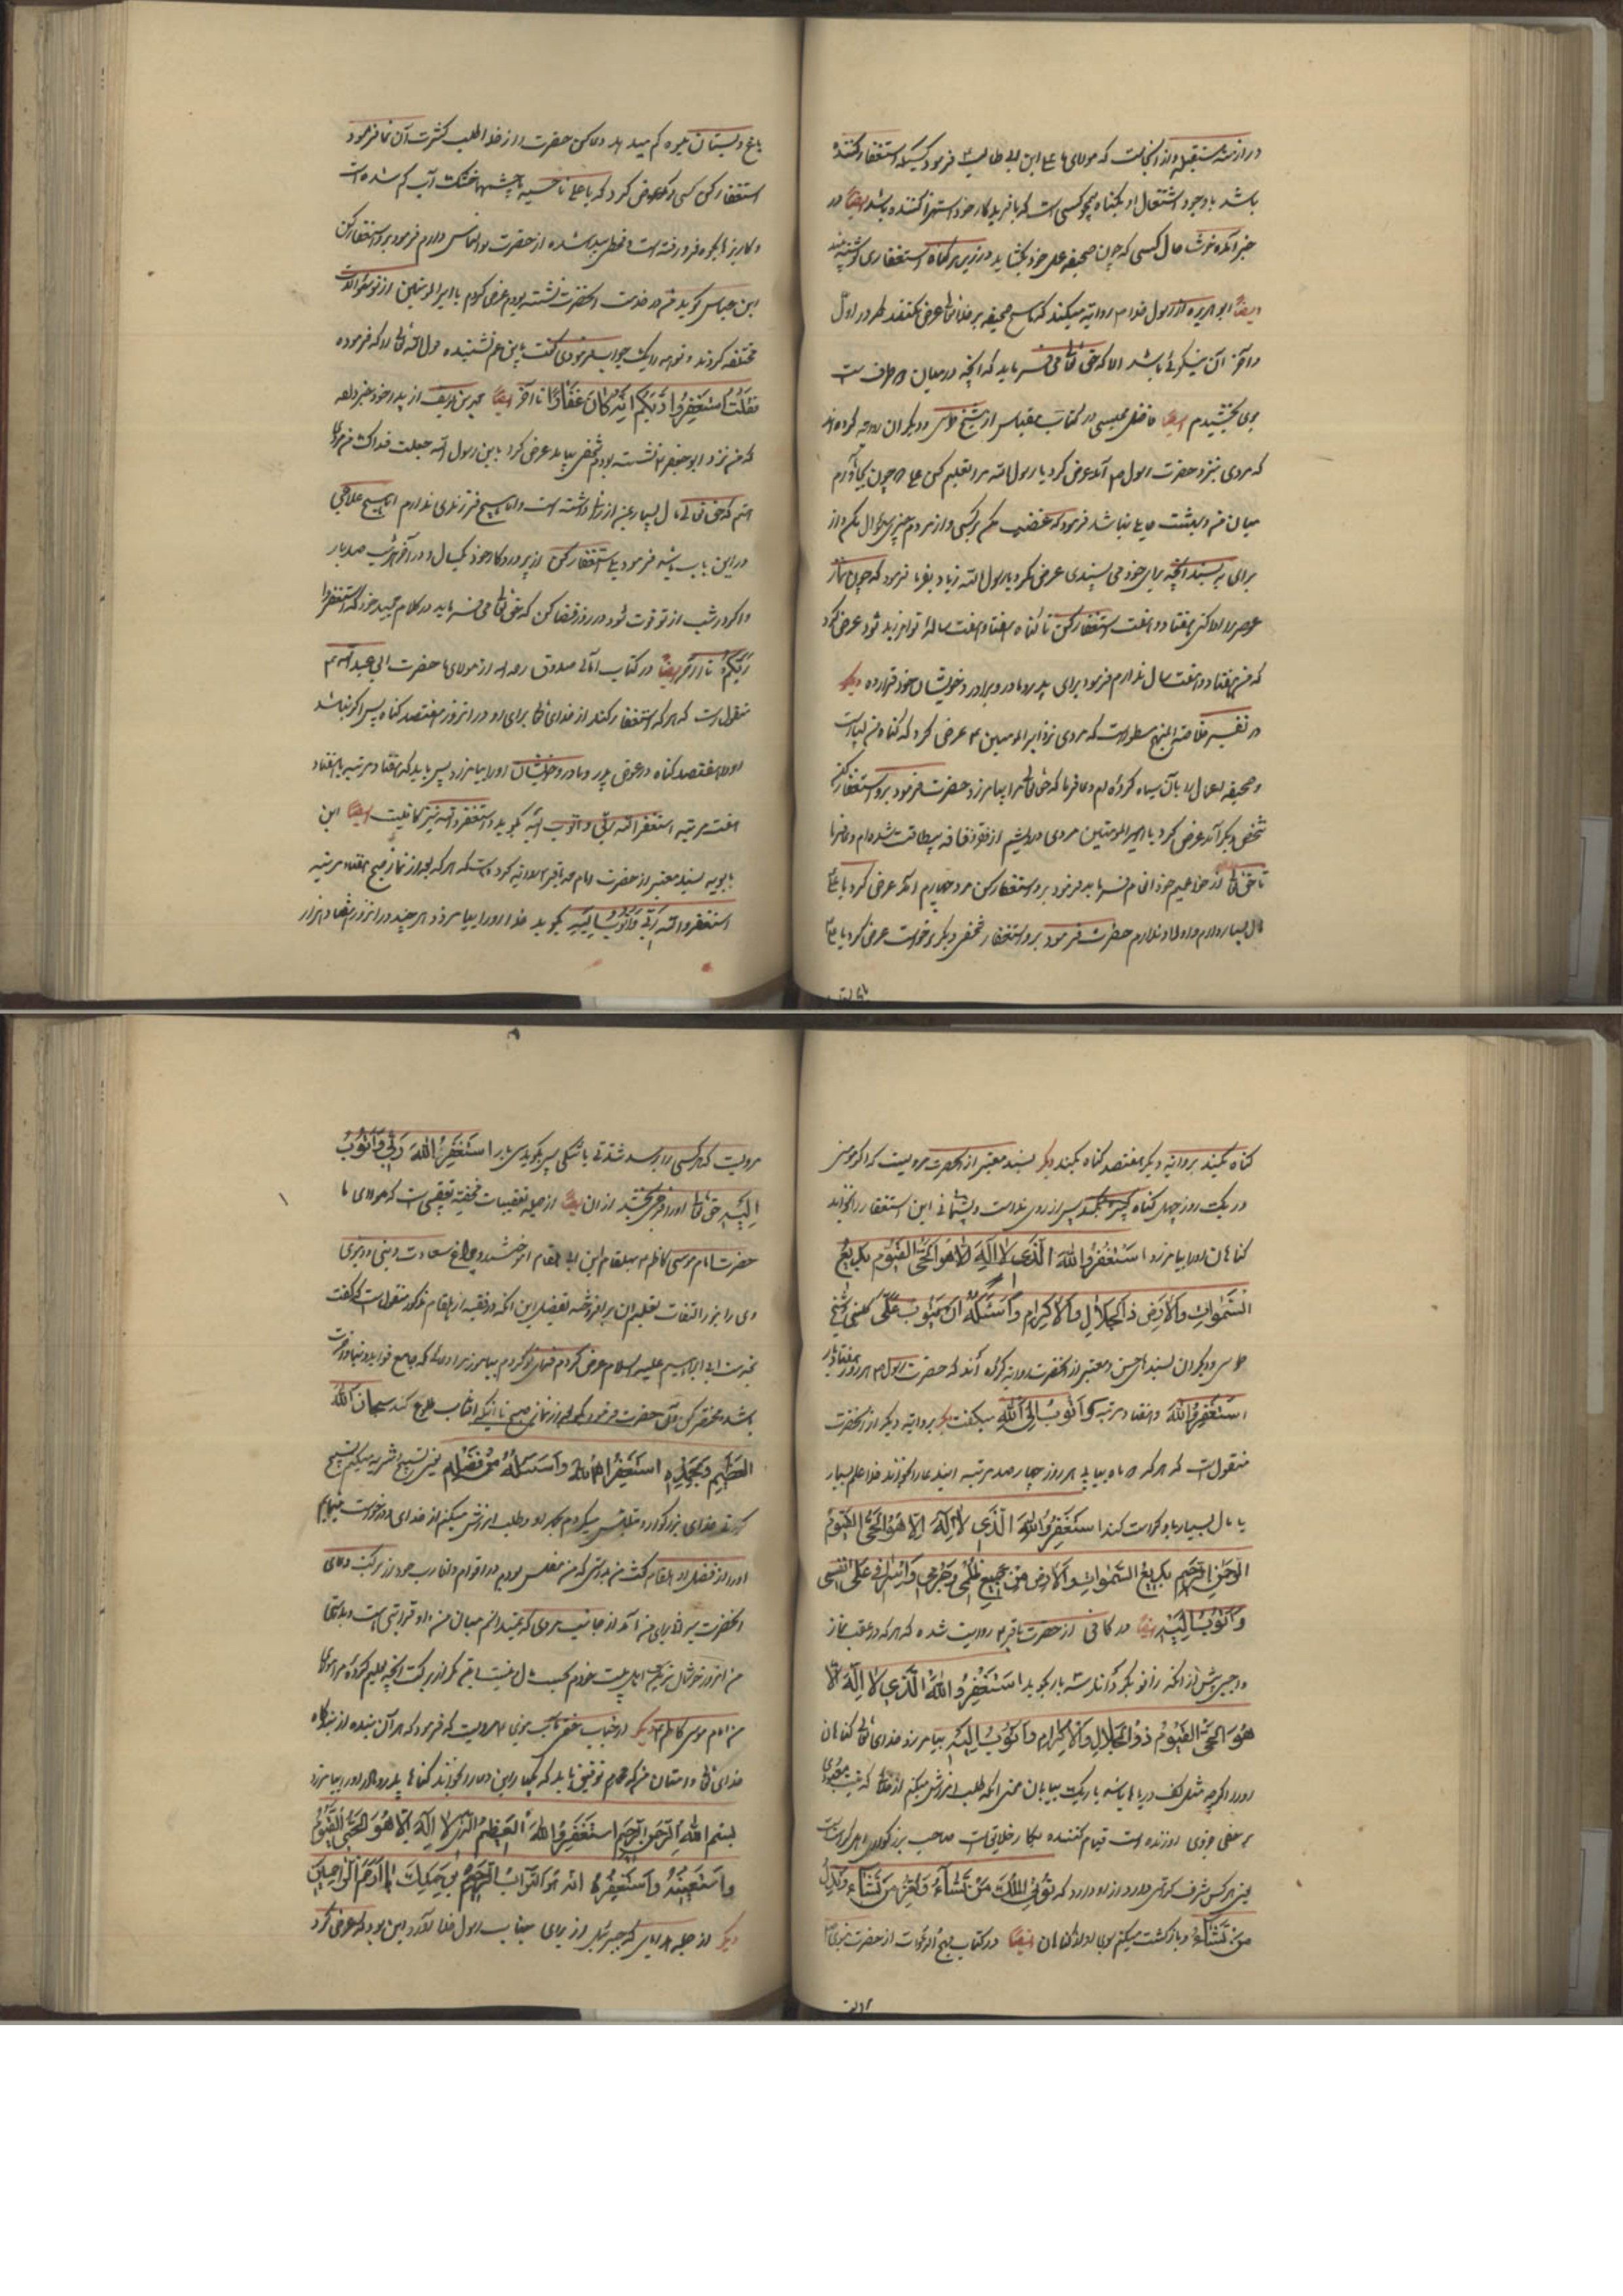 در ازمنه مستقبله و از انجاست که مولای ما علی ابن ابی طالب ع فرمود کسیکه استغفار کننده
باشد با وجود اشتغال او بگناه همچو کسی است که با فریدکار خود استهزا کننده باشد ایضاً در
خبر آمده خوشا حال کسی که چون صحیفه عمل خود بگشاید در زیر هر گناه استغفاری نوشته بیند
ایضاً ابو هریره از رسول خدا ص روایته میکند که هیچ صحیفه بر خدایتعالی عرض نکنند که در اول
و آخر آن نیکوئی باشد الا که حق تعالی می فرماید که آنچه در میان دو طرف است
بوی بخشیدم ایضاً فاضل مجلسی در کتاب مقباس از شیخ طوسی و دیگران روایه کرده اند
که مردی نزد حضرت رسول ص آمد عرض کرد یا رسول الله مرا تعلیم کن عملی که چون بجا آورم
میان من و بهشت مانعی نباشد فرمود که غضب مکن بر کسی و از مردم چیزی سؤال مکن و از
برای به پسند آنچه برای خود می پسندی عرض کرد یا رسول الله زیاد بفرما فرمود که چون نماز
عصر را ادا کنی هفتاد و هفت استغفار کن تا گناه هفتاد و هفت ساله تو امرزیده شود عرض کرد
که من هفتاد و هفت سال ندارم فرمود برای پدر و مادر و برادر و خویشان خود قرار ده دیگر
در تفسیر خلاصة المنهج مسطور است که مردی نزد امیر المومنین ع عرض کرد که گناه من بسیار است
و صحیفه اعمال را بآن سیاه کرده ام دعا فرما که حق تعالی مرا بیامرزد حضرت فرمود برو استغفار کن
شخص دیگر آمد عرض کرد یا امیر المومنین مردی درویشم از فقر و فاقه بیطاقت شده ام دعا فرما
تا حق تعالی از خزاین خود انعام فرماید فرمود برو استغفار کن مرد چهارم آمد عرض کرد یا علی
مال بسیار دارم و اولاد ندارم حضرت فرمود برو استغفار شخص دیگر برخواست عرض کرد یا علی ع
باغ و بستان
باغ و بستان میوه کم میدهد حضرت از خدا طلب کثرت آن نما فرمود
استغفار کن کسی دیگر عرض کرد که یا علی چشمها خشک آب کم شده است
و کاریز فرو رفته است و قحطی پیدا شده از حضرت تو التماس دعا دارم فرمود برو استغفار کن
ابن عباس گوید من در خدمت آنحضرت نشسته بودم عرض کردم یا امیر المومنین از تو سؤالات
مختلفه کردند و تو همه را یک جواب فرمودی گفت یابن عم نشنیده قول الله تعالی را که فرموده
فَقُلْتُ اسْتَغْفِرُوا رَبَّكُمْ إِنَّهُ كَانَ غَفَّارًا تا آخر ایضاً محمد بن یوسف از پدر خود خبر داده
که من نزد ابو جعفر ع نشسته بودم شخصی بیامد عرض کرد یابن رسول الله جعلت فداک من مردی
هستم که حق تعالی مال بسیار بمن ارزانی داشته است و اما هیچ فرزندی ندارم ایا هیچ علاجی
در این باب باشد فرمود بلی استغفار کن از پروردگار خود یکسال و در آخر هر شب صد بار
و اگر در شب از تو فوت شود در روز قضا کن که حق تعالی می فرماید در کلام مجید خود که استغفروا
رَبَّكُمْ تا آخر ایضاً در کتاب امالی صدوق رحمه الله از مولای ما حضرت ابی عبد الله ع
منقولست که هر که استغفار کند از خدای تعالی برای او در انروز هفتصد گناه پس اگر نباشد
اورا هفتصد گناه در عوض پدر و مادر و خویشان اورا بیامرزد پس باید که هفتاد مرتبه یا هفتاد
هفت مرتبه استغفر الله ربی و اتوب الیه بگوید و استغفر الله نیز کافیست ایضاً ابن
بابویه بسند معتبر از حضرت امام محمد باقر ع روایه کرده است که هر که بعد از نماز صبح هفتاد مرتبه
استغفر الله ربی و اتوب الیه بگوید خدا اورا بیامرزد هر چند در انروز هفتاد هزار
گناه بکند بروایه دیگر هفتصد گناه بکند دیگر بسند معتبر از آنحضرت مرویست که اگر مومنی
در یک روز چهل گناه کبیره بکند پس از روی ندامت و پشیمانی این استغفار را بخواند
گناهان اورا بیامرزد اَسْتَغْفِرُ اللهَ الَّذِي لا اِلهَ اِلّا هُوَ الْحَيُّ الْقَيُّوم بَدِيعُ
السَّمواتِ وَالْاَرْضِ ذَا الْجَلالِ وَالْاِكْرامِ وَاَسْئَلُهُ اَنْ يَتُوبَ عَلَيَّ کلینی و شیخ
طوسی و دیگران بسند های حسن و معتبر از آنحضرت روایه کرده اند که حضرت رسول ص هر روز هفتاد بار
اَسْتَغْفِرُ اللهَ و هفتاد مرتبه وَاَتُوبُ اِلَى اللهِ میگفت دیگر بروایه دیگر از آنحضرت
منقولست که هر که دو ماه پیاپی هر روز چهار صد مرتبه ایندعا را بخواند خدا علم بسیار
یا مال بسیار باو کرامت کند اَسْتَغْفِرُ اللهَ الَّذِي لا اِلهَ اِلّا هُوَ الْحَيُّ الْقَيُّومُ
الرَّحْمنُ الرَّحِيمُ بَدِيعُ السَّمواتِ وَالْاَرْضِ مِنْ جَمِيعِ ظُلْمِي وَجُرْمِي وَاِسْرافِي عَلى نَفْسِي
وَاَتُوبُ اِلَيْهِ ایضاً در کافی از حضرت باقر ع روایت شده که هر که در عقب نماز
واجبی پیش از آنکه زانو بگرداند سه بار بگوید اَسْتَغْفِرُ اللهَ الَّذِي لا اِلهَ اِلّا
هُوَ الْحَيُّ الْقَيُّومُ ذُو الْجَلالِ وَالْاِكْرامِ وَاَتُوبُ اِلَيْهِ بیامرزد خدای تعالی گناهان
اورا اگر چه مثل کف دریاها باشد یا ریک بیابان معنی انکه طلب امرزش میکنم از خدائی که نیست معبودی
بر حق جز وی او زنده است قیام کننده بکار خلایق است صاحب بزرگواری
یعنی هر کس شرف کرامتی دارد از او دارد که تُؤْتِي الْمُلْكَ مَنْ تَشاءُ وَتُعِزُّ مَنْ تَشاءُ وَتُذِلُّ
مَنْ تَشاءُ و بازگشت میکنم بسوی او از گناهان ایضاً در کتاب مهج الدعوات از حضرت نبوی ص
مرویست
مرویست که هر کسی را برسد شدتی یا تنگی پس بگوید سی هزار اَسْتَغْفِرُ اللهَ رَبِّي وَاَتُوبُ
اِلَيْهِ حق تعالی اورا فرجی بخشد از ان ایضاً از جمله تعقیبات مختصه تعقیبی است که مولای ما
حضرت امام موسی کاظم ع بهلقام ابن ابی هلقام اموخته و چراغ سعادت دینی و دنیوی
وی را بنور التفات تعلیم آن برافروخته تفصیل این آنکه در فقیه از هلقام مذکور منقول است که گفت
بخدمت ابی ابراهیم علیه السلام عرض کردم فدای تو کردم بیاموز مرا دعائی که جامع فواید دنیا و اخرت
باشد و مختصر کن آن حضرت فرمود بگو بعد از نماز صبح تا آنکه افتاب طلوع کند سُبْحانَ اللهِ
الْعَظِيمِ وَبِحَمْدِهِ اَسْتَغْفِرُ اللهَ وَاَسْئَلُهُ مِنْ فَضْلِهِ یعنی تسبیح و تنزیه میکنم تسبیح
کردنی خدای بزرگوار و متلبس میکردم بحمد او و طلب امرزش میکنم از خدای و درخواست مینمایم
اورا از فضل او هلقام گفت من بدرستی که من مفلس بودم در اقوام و اقارب خود از برکت دعای
آنحضرت میراثی برای من آمد از جانب مردی که نمیدانم میان من و او قرابتی است و بدرستی
من امروز خوشحال تر اهل بیت خودم بحسب مال و نیست اینهم مگر از برکت آنچه تعلیم کرده مرا مولای
من امام موسی کاظم ع دیگر از جناب مرویست که فرمود که هر آن بنده از بندگان
خدای تعالی و امتان من که توفیق یابد که یکبار این دعا را بخواند گناهان پدر و مادر اورا بیامرزد
بِسْمِ اللهِ الرَّحْمنِ الرَّحِيمِ اَسْتَغْفِرُ اللهَ الْعَظِيمَ الَّذِي لا اِلهَ اِلّا هُوَ الْحَيُّ الْقَيُّومُ
وَاَسْتَعِينُهُ وَاَسْتَغْفِرُهُ اِنَّهُ هُوَ التَّوّابُ الرَّحِيمُ بِرَحْمَتِكَ يا اَرْحَمَ الرّاحِمِينَ
دیگر از جمله هدایای که جبرئیل از برای جناب رسول خدا ص آورد این بود که عرض کرد